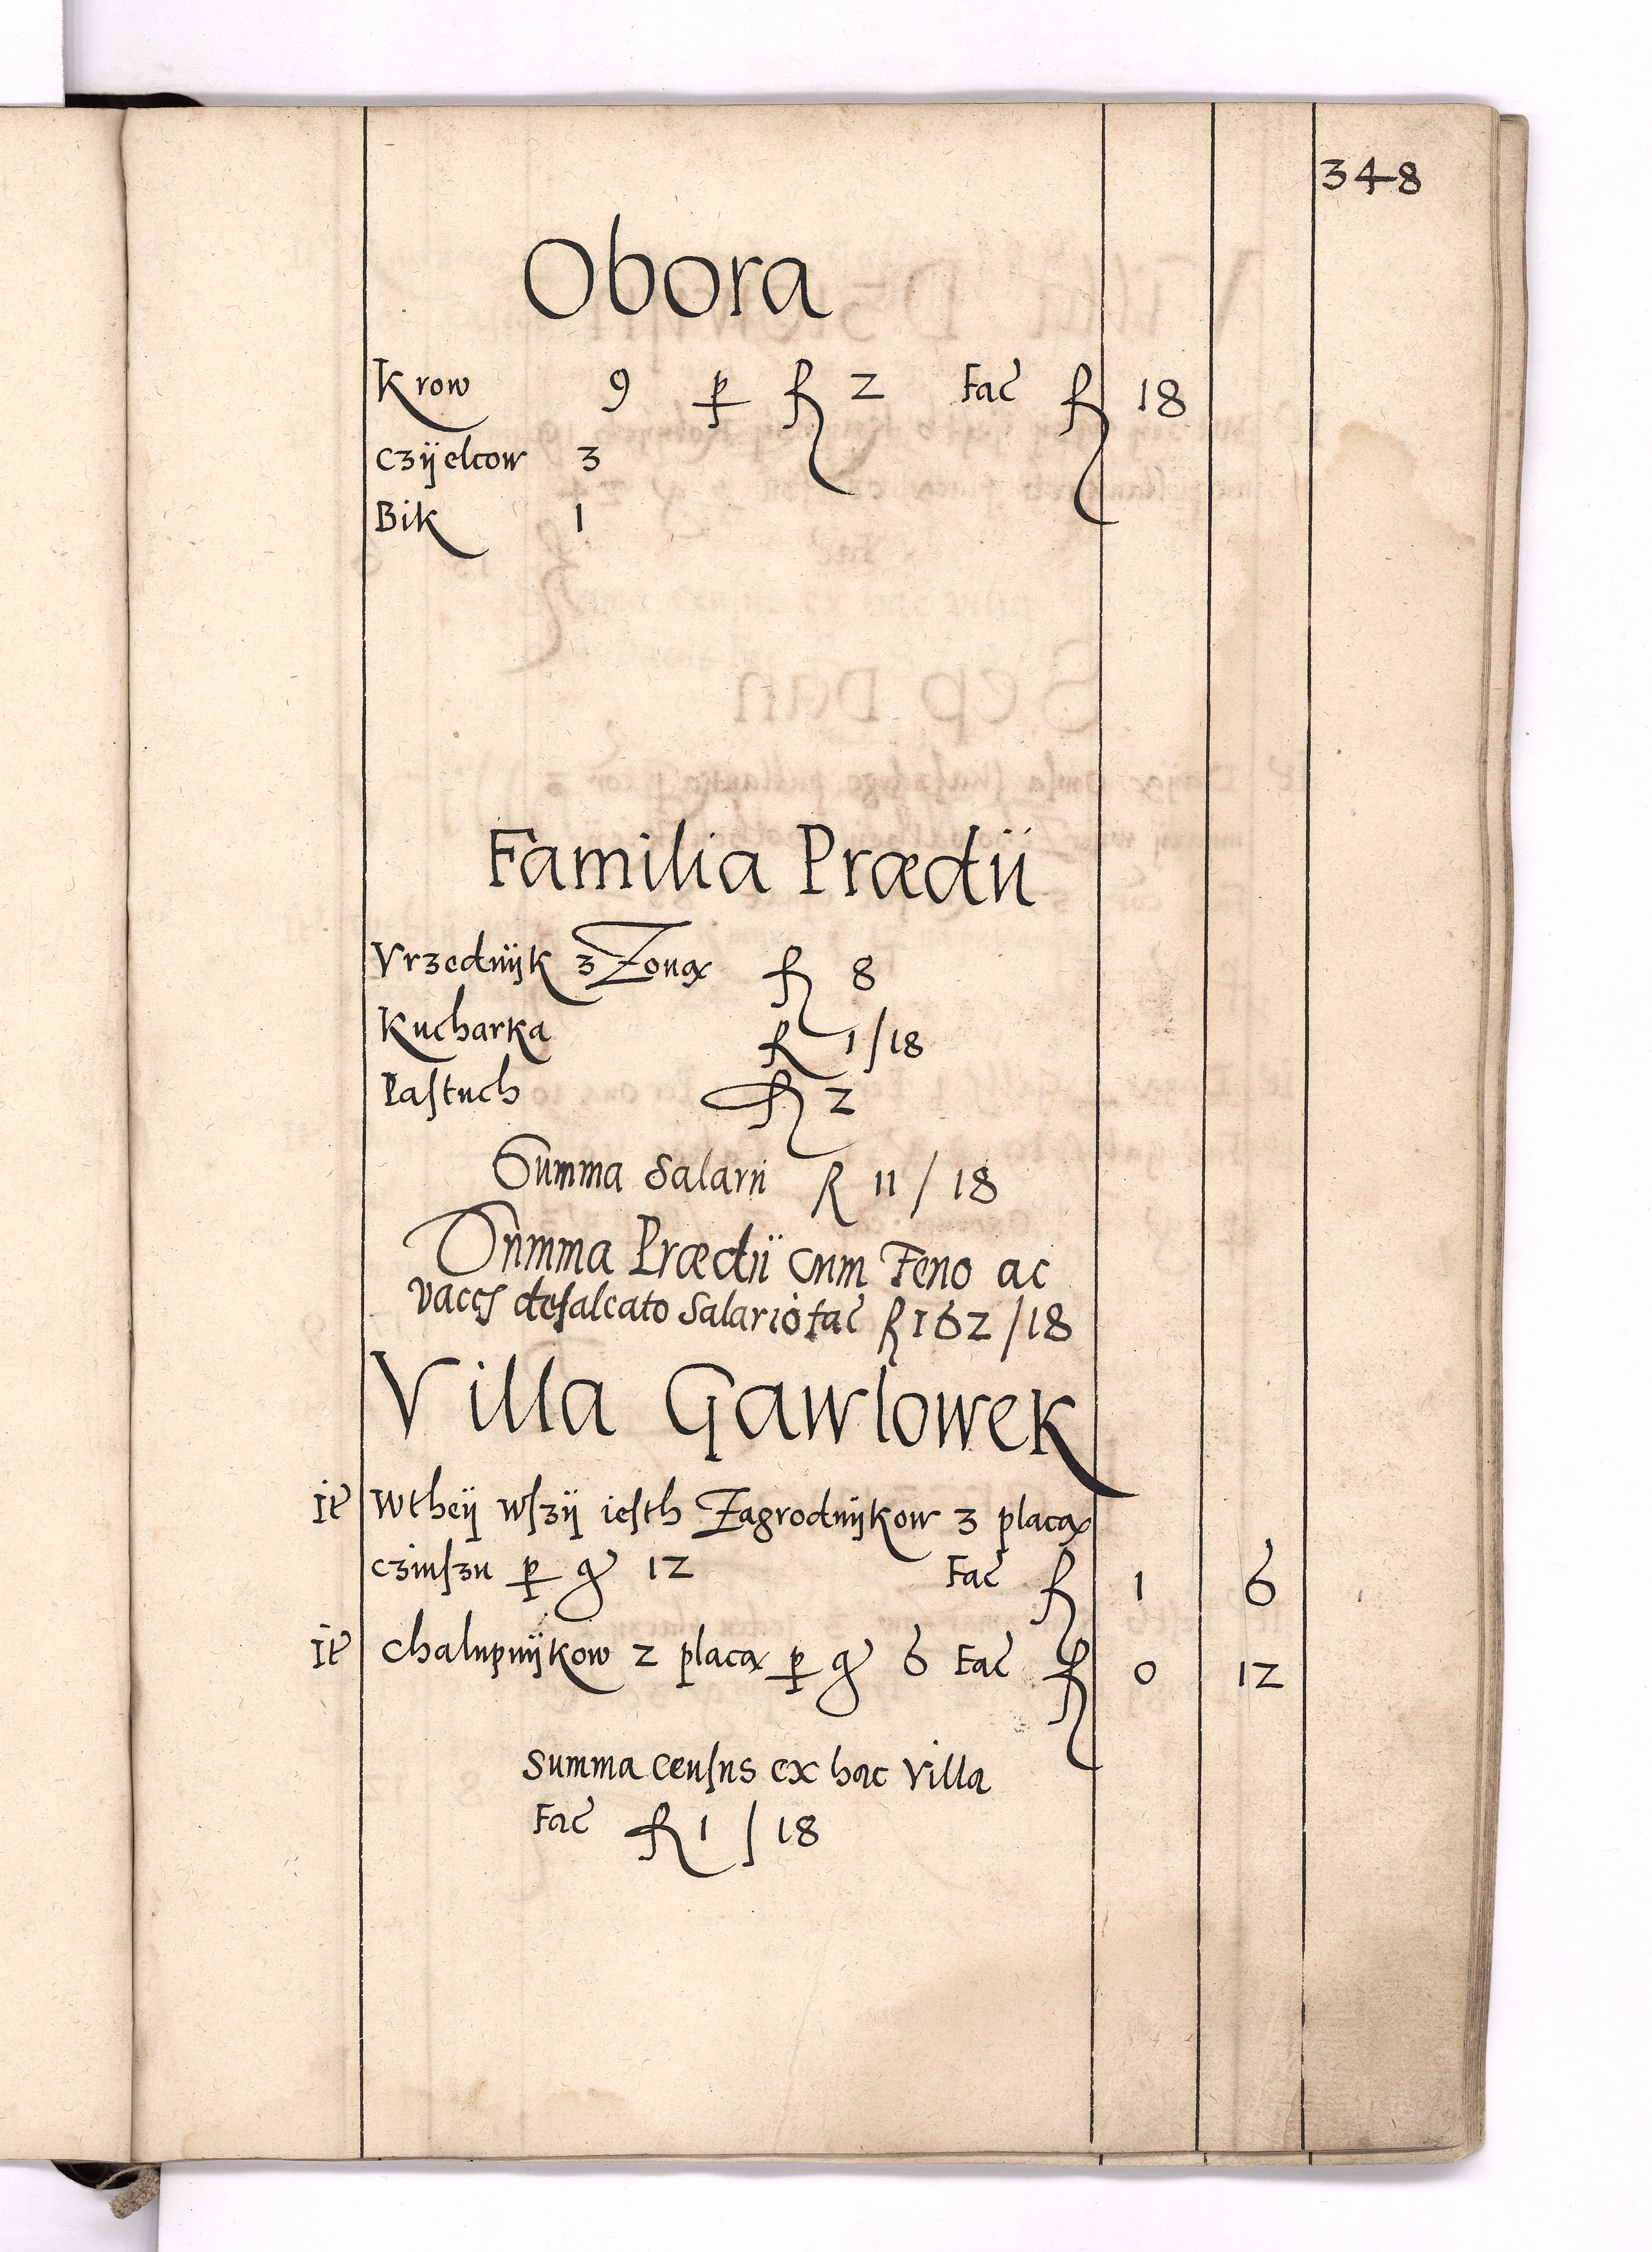 348
Obora
Krow 9 p fl 2 Fac fl 18
czÿelcow 3
Bik 1
Familia Prædii
Vrzednÿk z Zoną fl 8
Kucharka fl 1/18
Paſtuch fl 2
Summa Salarii fl 11/18
Summa Prædii cum Feno ac
vaccis defalcato Salario fac fl 162/18
Villa Gawlowek
It Wtheÿ wſzÿ ieſth Zagrodnÿkow 3 placą
czinſzu p gr 12 Fac fl 1 6
It Chalupnÿkow 2 placą p gr 6 Fac fl 0 12
Summa Cenſus ex hac Villa
Fac fl 1/18